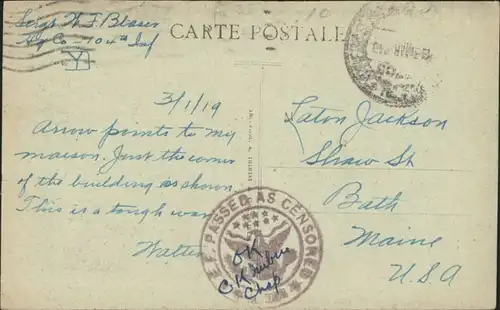 Sergt W. F. Blaser
Hq Co - 104th Inf
CARTE POSTALE
3/1/19
Arrow points to my
maison. Just the corner
of the building is shown.
This is a tough war
Walter
A.E.F. PASSED AS CENSORED
OK
Chap
Laton Jackson
Shaw St
Bath
Maine
U.S.A